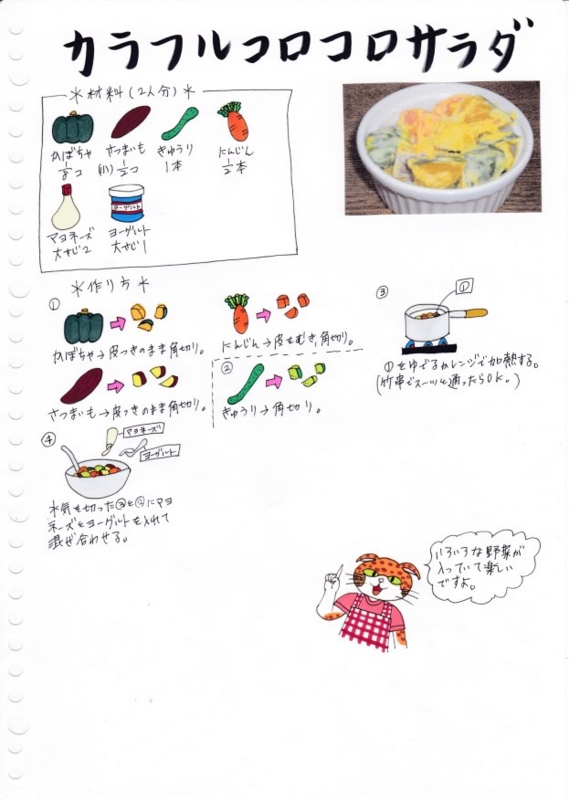 カラフルコロコロサラダ
＊材料(2人分)＊
かぼちゃ
1/8コ
さつまいも
(小)1/2コ
きゅうり
1本
にんじん
1/2本
ヨーグルト
マヨネーズ
大さじ2
ヨーグルト
大さじ1
＊作り方＊
①
かぼちゃ→皮つきのまま角切り。
にんじん→皮をむき、角切り。
さつまいも→皮つきのまま角切り。
②
きゅうり→角切り。
③
①
①をゆでるかレンジで加熱する。
(竹串でスーッと通ったらOK。)
④
マヨネーズ
ヨーグルト
水気を切った③と②にマヨ
ネーズとヨーグルトを入れて
混ぜ合わせる。
いろいろな野菜が
入っていて楽しい
ですよ。